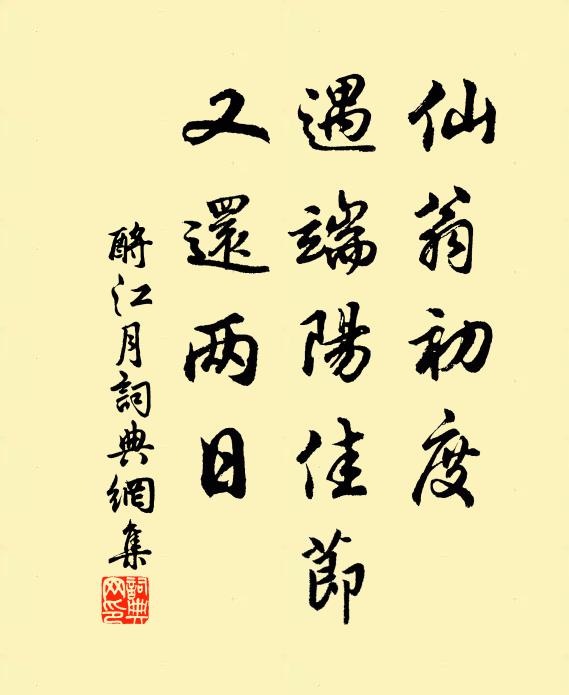 仙翁初度
遇端陽佳節
又還两日
酹江月詞典網集
詞典网印